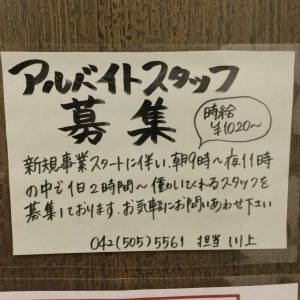 アルバイトスタッフ
募集
時給
¥1020~
新規事業スタートに伴い、朝9時~夜11時
の中で1日2時間~働いてくれるスタッフを
募集しております。お気軽にお問いあわせ下さい
042(505)5561 担当 川上